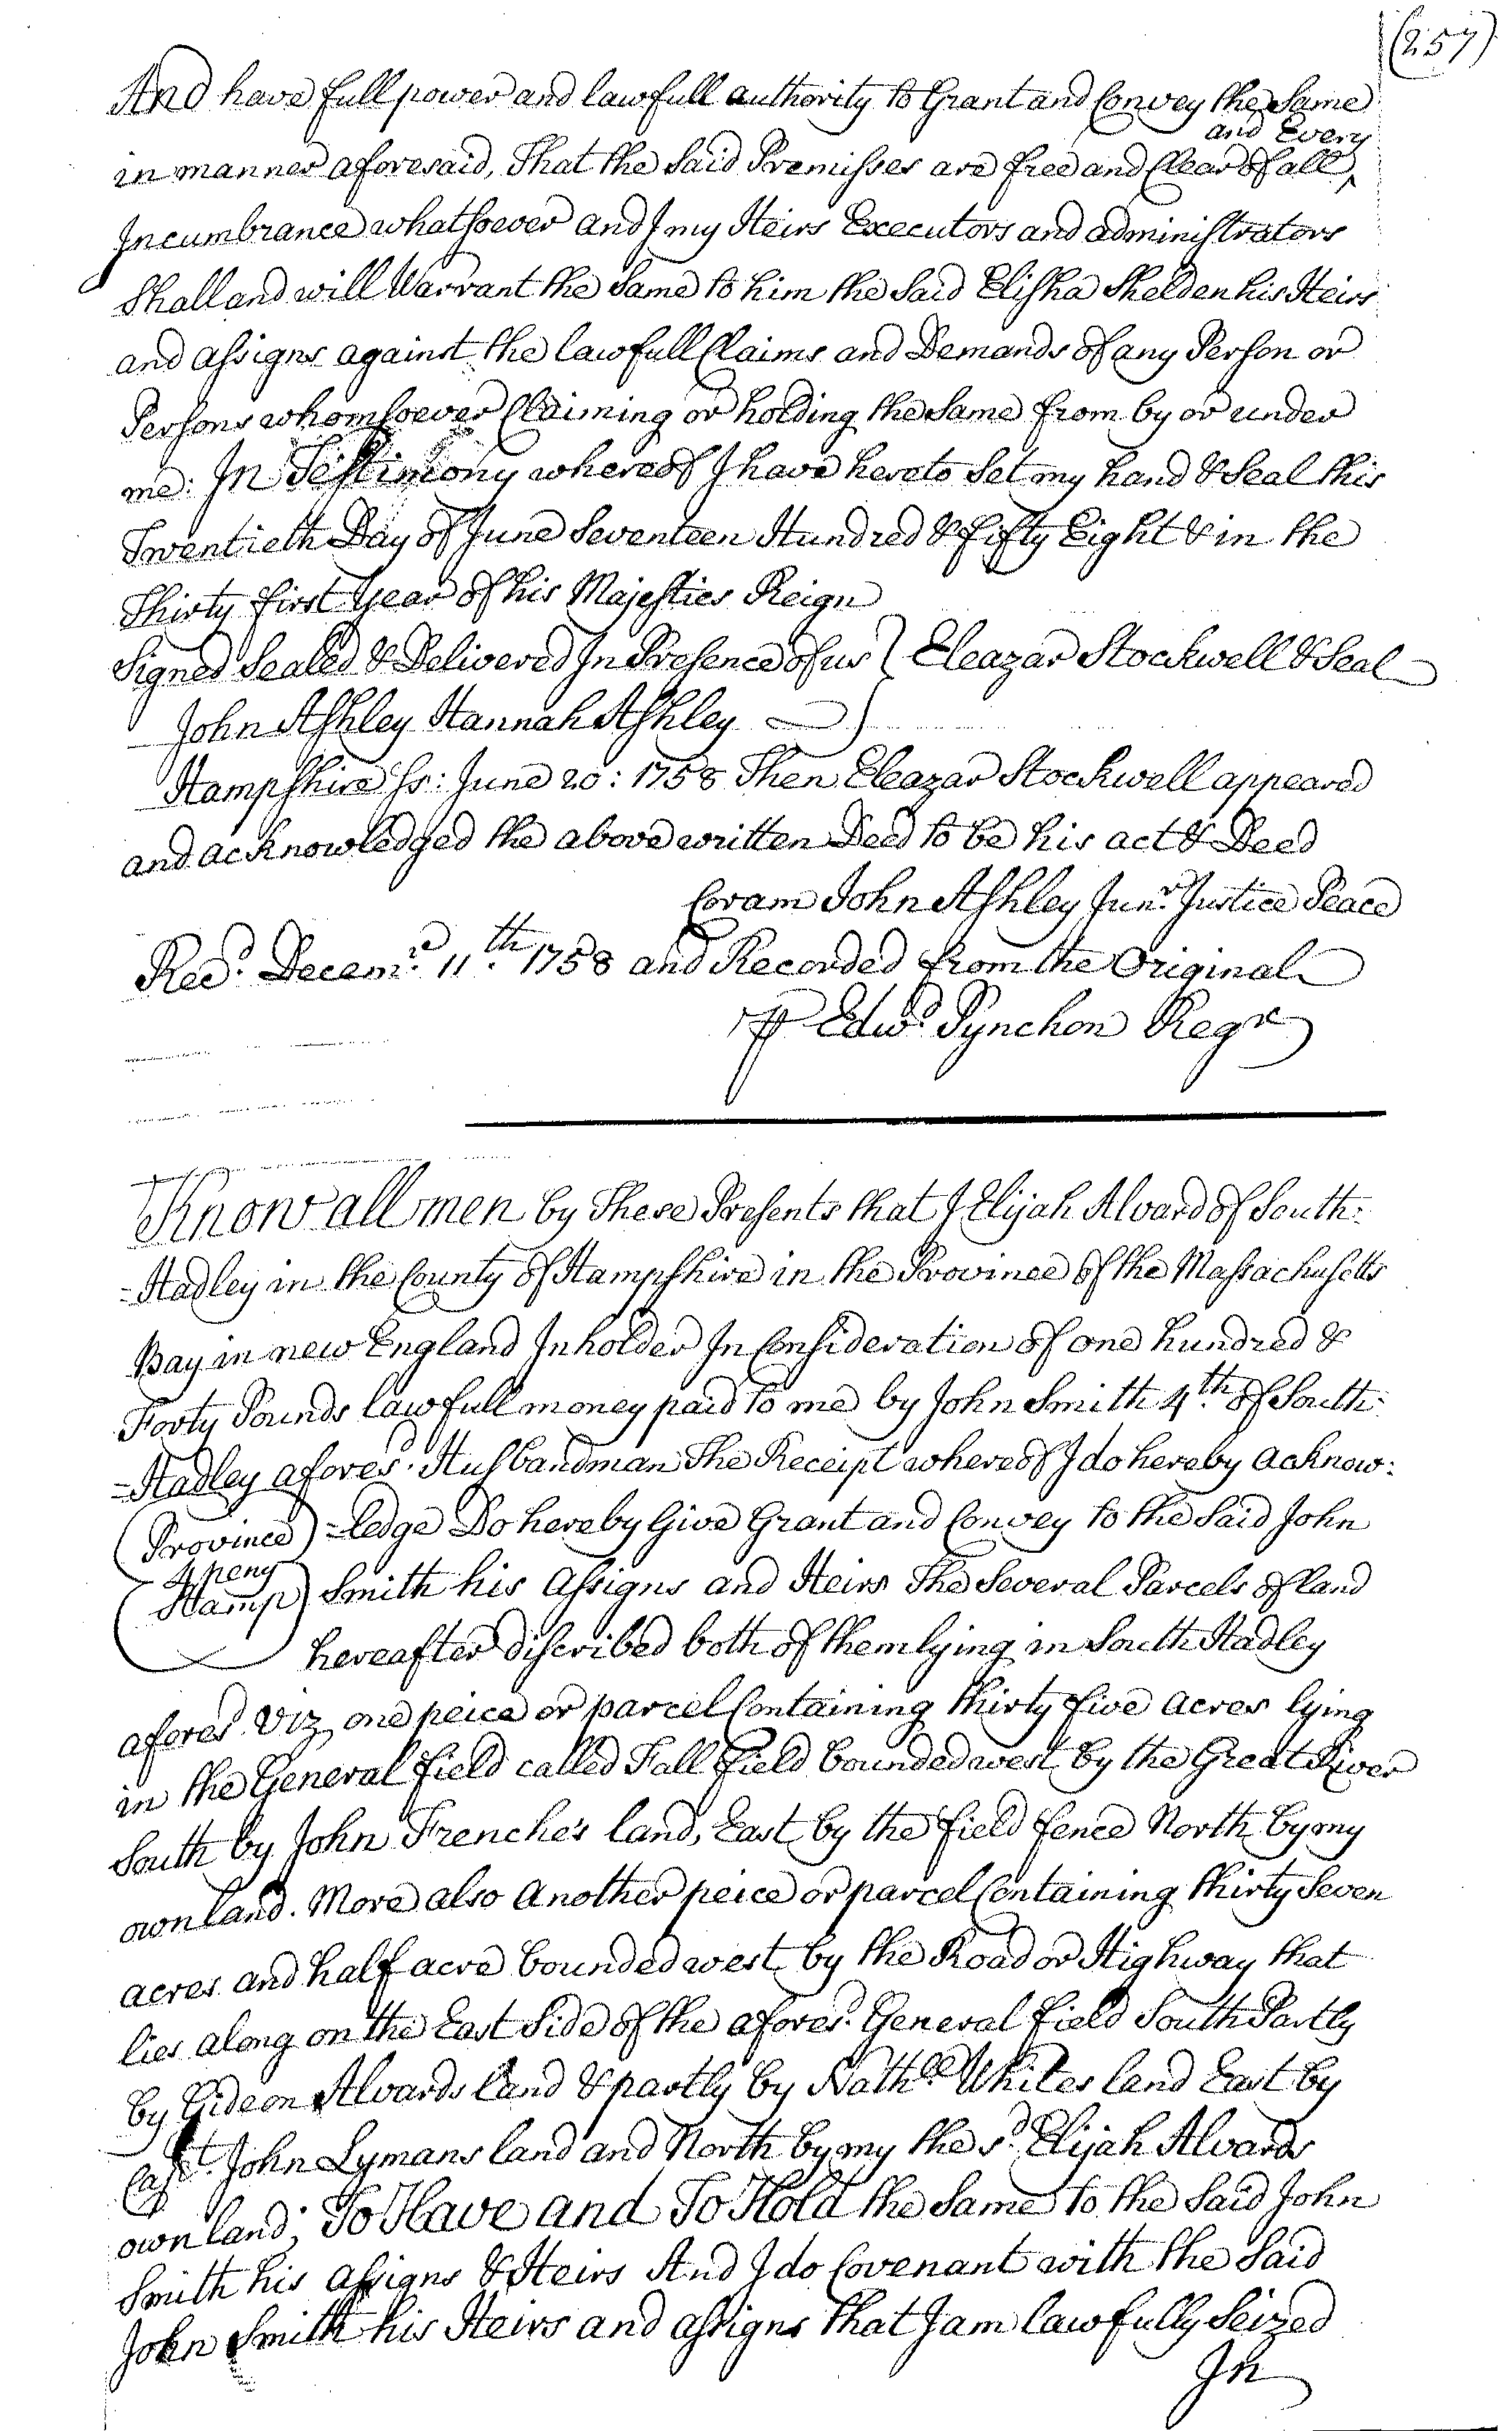 (257)
And have full power and lawfull authority to Grant and Convey the Same
and Every
in manner aforesaid, That the Said Premisses are free and Clear of all ^
Incumbrance whatsoever and I my Heirs Executors and administrators
Shall and will Warrant the Same to him the Said Elisha Shelden his Heirs
and assigns against the lawfull Claims and Demands of any Person or
Persons whomsoever Claiming or holding the Same from by or under
me: In Testimony whereof I have hereto Set my hand & Seal this
Twentieth Day of June Seventeen Hundred & fifty Eight & in the
Thirty first Year of his Majesties Reign
Signed Sealed & Delivered In Presence of us } Eleazar Stockwell & Seal
John Ashley Hannah Ashley
Hampshire Ss: June 20: 1758 Then Eleazar Stockwell appeared
and acknowledged the above written Deed to be his act & Deed
Coram John Ashley Junr. Justice Peace
Recd. Decemr. 11th. 1758 and Recorded from the Original
℔ Edwd. Pynchon Regr
Know all men by These Presents that I Elijah Alvard of South:
=Hadley in the County of Hampshire in the Province of the Massachusetts
Bay in new England Inholder In Consideration of one hundred &
Forty Pounds lawfull money paid to me by John Smith 4th. of South:
=Hadley aforesd. Husbandman The Receipt whereof I do hereby acknow:
(Province) =ledge Do hereby Give Grant and Convey to the Said John
4 peny
(Stamp) Smith his Assigns and Heirs The Several Parcels of land
hereafter discribed both of them lying in South Hadley
aforesd. Viz one peice or parcel Containing thirty five acres lying
in the General field called Fall field bounded west by the Great River
South by John Frenches land, East by the field fence North by my
own land. More also Another peice or parcel Containing thirty Seven
acres and half acre bounded west by the Road or Highway that
lies along on the East Side of the aforesd. General field South Partly
by Gideon Alvards land & partly by Nathll. Whites land East by
Capt. John Lymans land and North by my the sd. Elijah Alvards
own land; To Have and To Hold the Same to the Said John
Smith his assigns & Heirs And I do Covenant with the Said
John Smith his Heirs and assigns that I am lawfully Seized
In